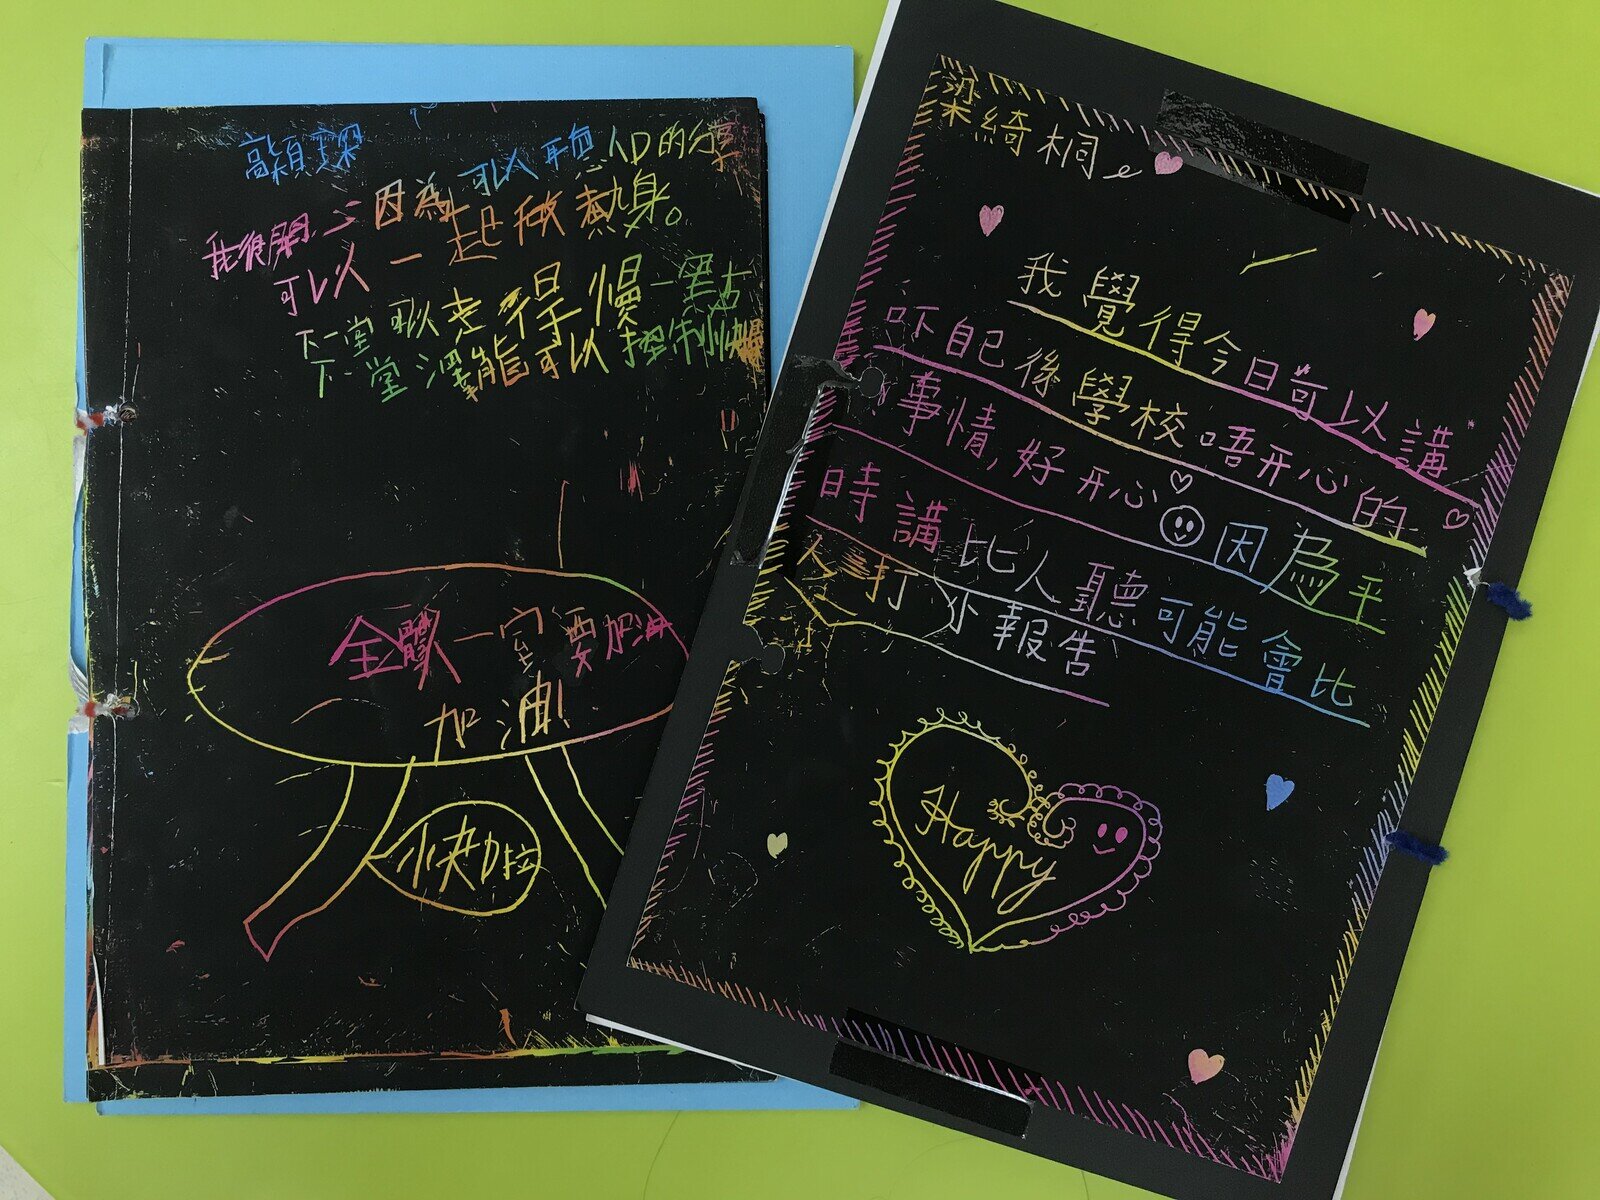 高穎
可以 人D的分享
我很開心因為
可以一起做熱身。
下一堂可以走得慢一點
下一堂 能可以控制快慢
全體一定要加油
加油!
快力拉
梁綺桐
我覺得今日可以講
吓自己後學校唔開心的
事情,好開心 因為平
時講比人聽可能會比
人打小報告
Happy